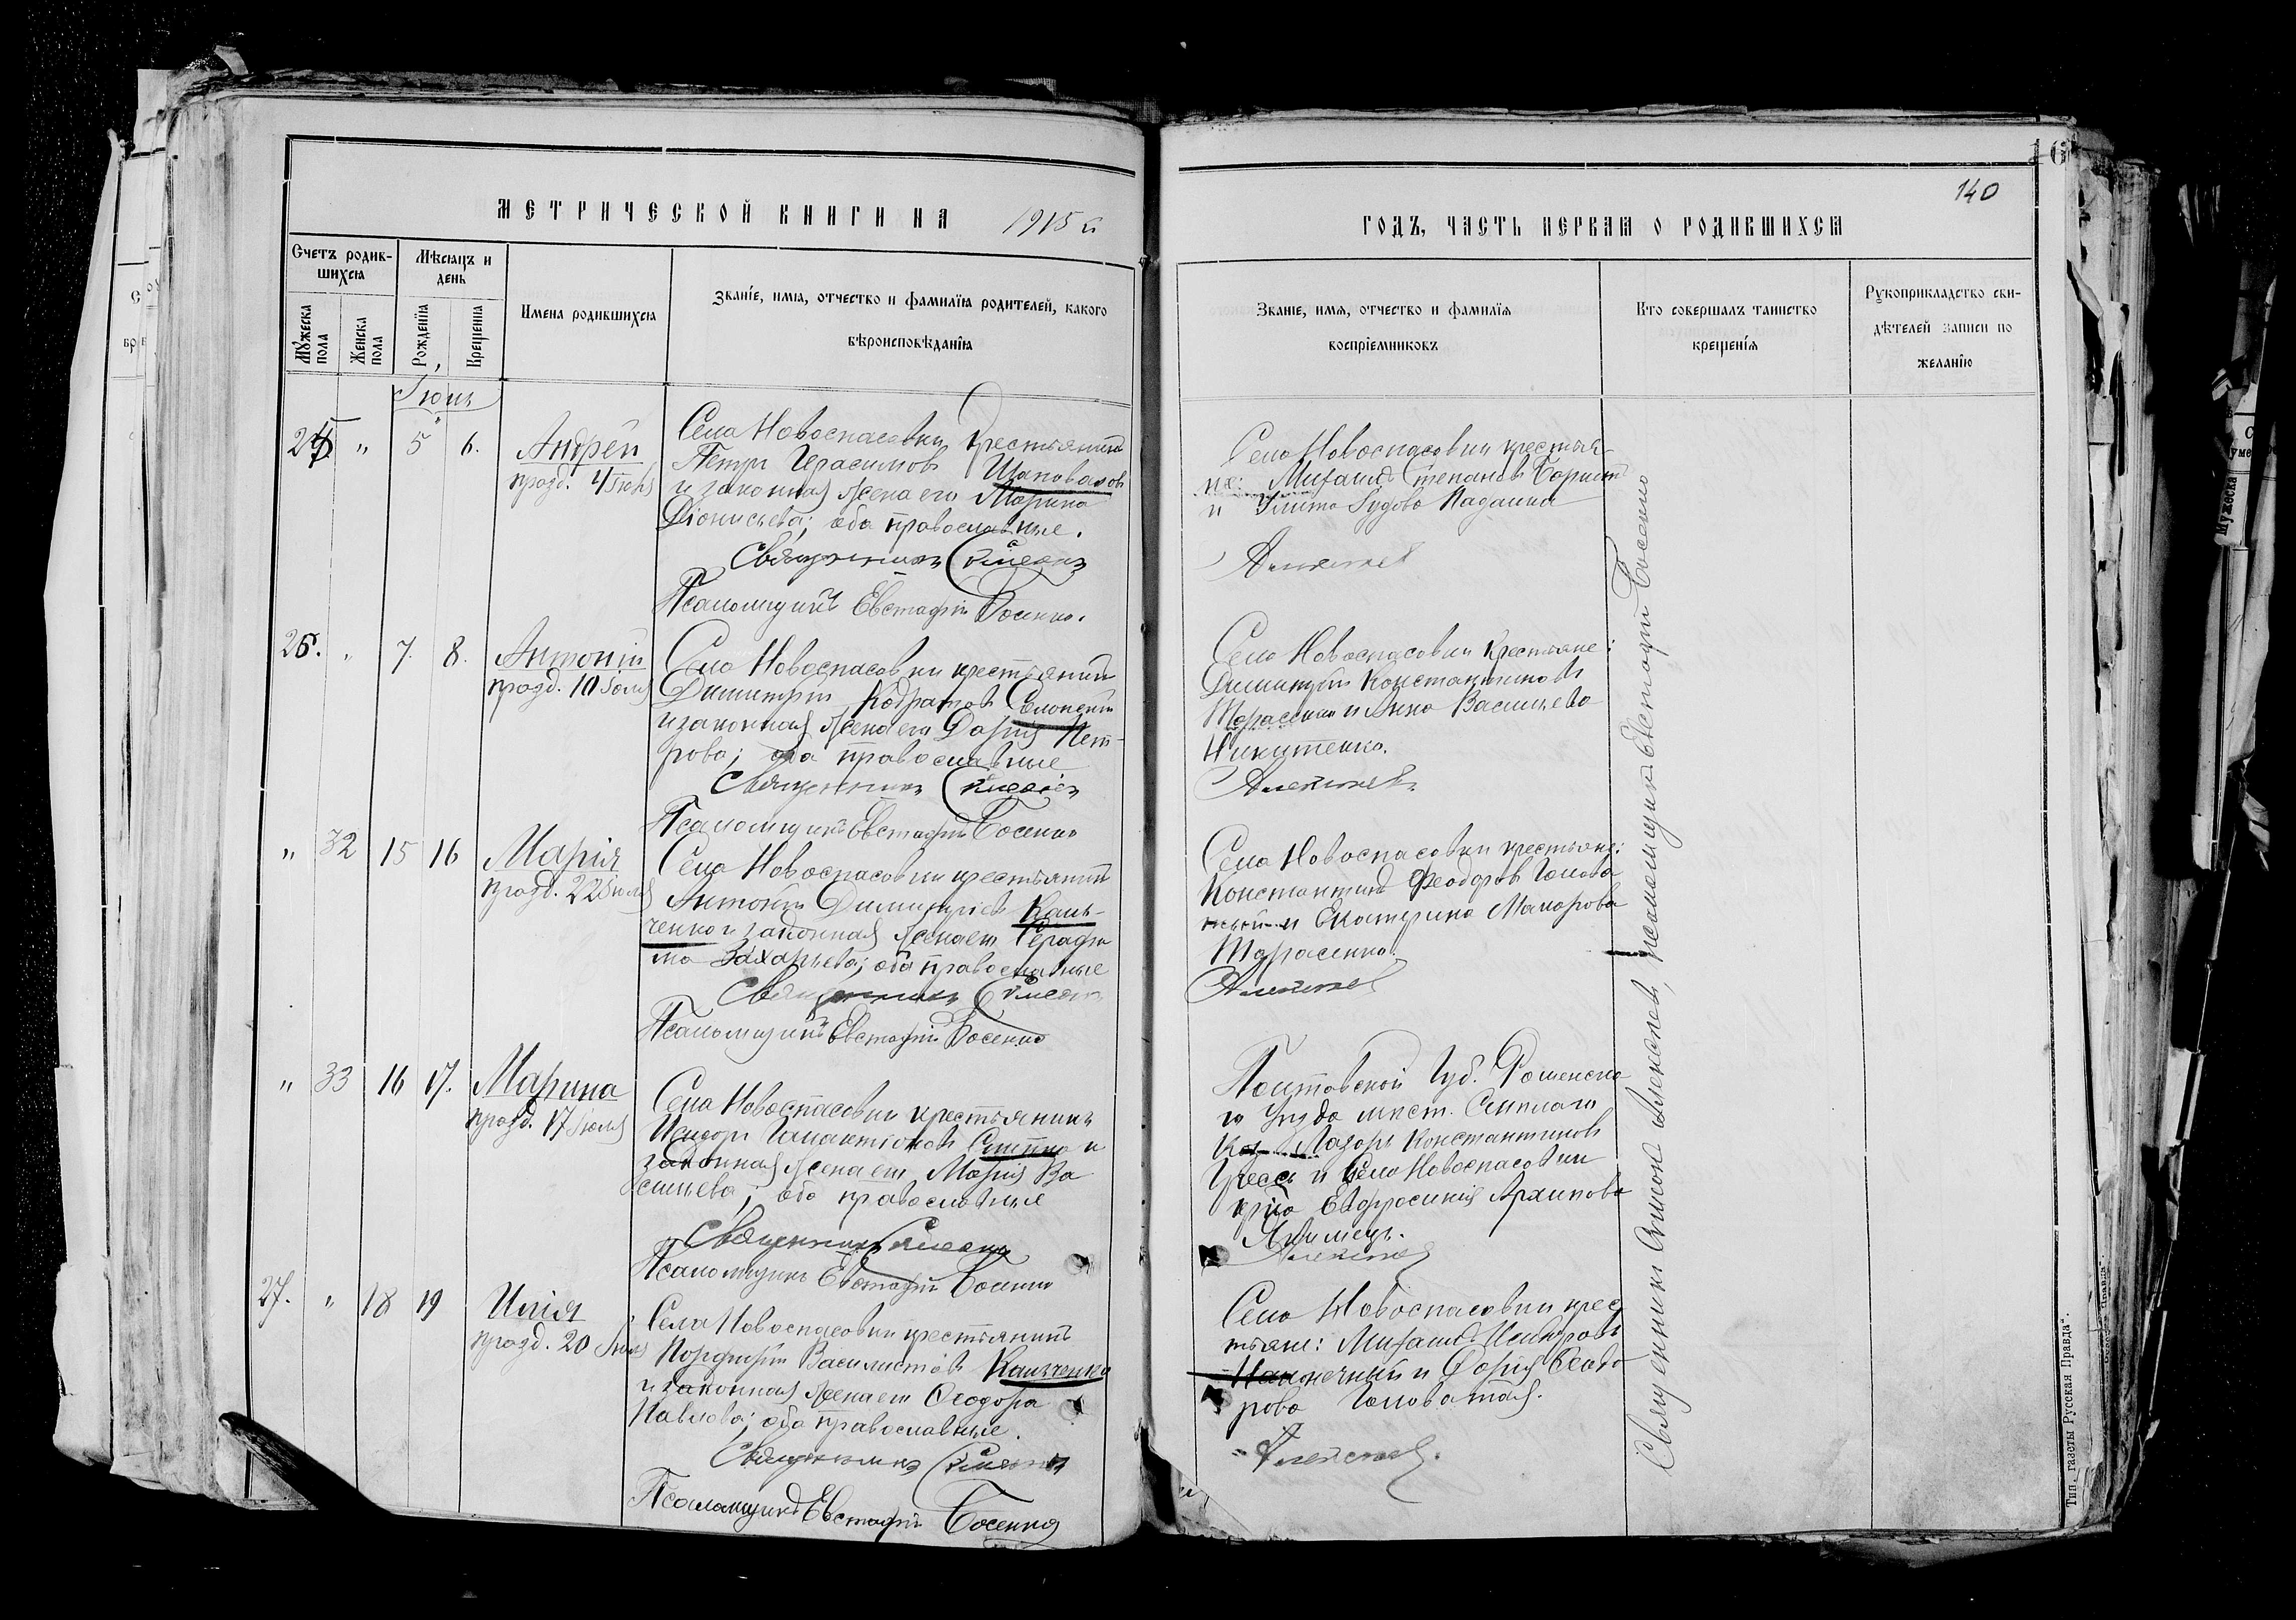 МЕТРИЧЕСКОЙ КНИГИ НА 1915 г
Счетъ родив-
шихся
Мѣсяцъ и
день
Мужеска
пола
Женска
пола
Рожденія
Крещенія
Имена родившихся
Званіе, имя, отчество и фамилія родителей, какого
вѣроисповѣданія
25 " 5 6. Андрей
празд. 4 Іюля
Села Новоспасовки крестьянинъ
Петръ Герасимовъ Шаповаловъ
и законная жена его Марина
Діонисьева; оба православные.
Священникъ
Псаломщикъ Евстафій Босенко.
26. " 7. 8. Антоній
празд. 10 Іюля
Села Новоспасовки крестьянинъ
Димитрій Кодратовъ
и законная жена его Дарія Пет-
рова; оба православные
Священникъ
Псаломщикъ Евстафій Босенко
" 32 15 16 Марія
празд. 22 Іюля
Села Новоспасовки крестьянинъ
Антоній Димитріевъ Каль-
ченко и законная жена его Серафи
ма Захарьева; оба православные
Священникъ
Псаломщикъ Евстафій Босенко
" 33 16 17. Марина
празд. 17 Іюля
Села Новоспасовки крестьянинъ
Исидоръ Галактіоновъ и
законная жена его Марія Ва
сильева; оба православные
Священникъ
Псаломщикъ Евстафій Босенко
27. " 18 19 Илія
празд. 20 Іюля
Села Новоспасовки крестьянинъ
Порфирій Василисковъ Кальченко
и законная жена его Ѳеодора
Павлова; оба православные.
Священникъ
Псаломщикъ Евстафій Босенко
16
140
ГОДЪ, ЧАСТЬ ПЕРВАЯ О РОДИВШИХСЯ
Званіе, имя, отчество и фамилія
воспріемниковъ
Кто совершалъ таинство
крещенія
Рукоприкладство сви-
дѣтелей записи по
желанію
Села Новоспасовки крестья-
не: Михаилъ Степановъ
и Улита
Алексѣевъ
Села Новоспасовки крестьяне:
Димитрій Константиновъ
Тарасенко и Анна Васильева
Никитенко.
Алексѣевъ
Села Новоспасовки крестьяне:
Константинъ Ѳеодоровъ Голова
тый и Екатерина Макарова
Тарасенко.
Алексѣевъ
Полтавской Губ. Роменска
го Уѣзда мѣст. Смѣлаго
Каз. Лазарь Константиновъ
и Села Новоспасовки
кр-ка Евфросинія Архипова
Якимецъ.
Алексѣевъ
Села Новоспасовки крес
тьяне: Михаилъ Исидоровъ
Наконечный и Дарія Ѳеодо
рова Головатая.
Алексѣевъ.
Священникъ Симеонъ Алексѣевъ, псаломщикъ Евстафій Босенко
Тип. газеты Русская Правда".